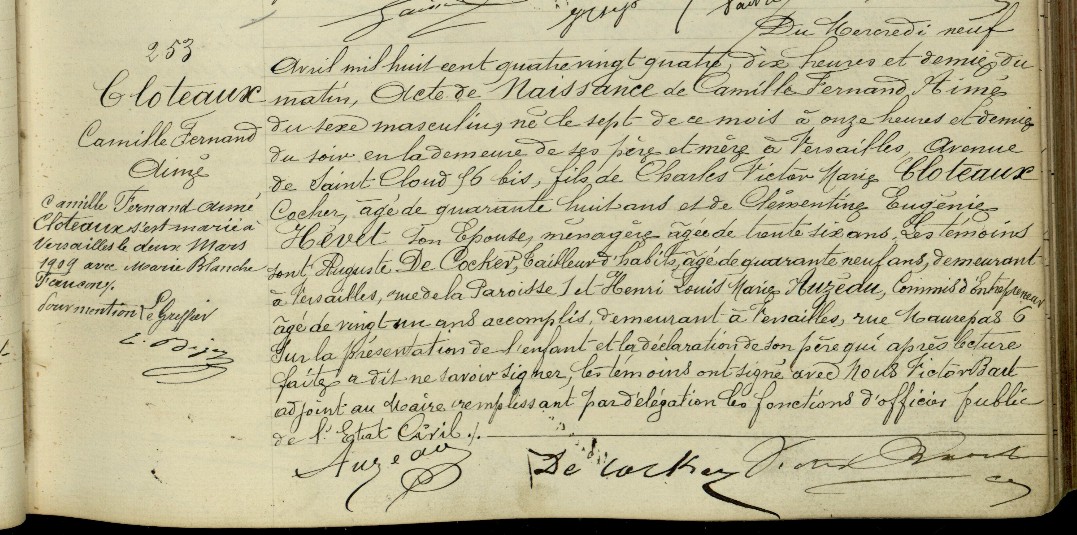 253
Cloteaux
Camille Fernand
Aimé
Camille Fernand Aimé
Cloteaux s'est marié à
Versailles le deux Mars
1909 avec Marie Blanche
Pour mention Le Greffier
Du Mercredi neuf
Avril mil huit cent quatre vingt quatre, dix heures et demie du
matin, Acte de Naissance de Camille Fernand Aimé
du sexe masculin, né le sept de ce mois à onze heures et demie
du soir en la demeure de ses père et mère à Versailles, Avenue
de Saint Cloud 56 bis, fils de Charles Victor Marie Cloteaux
Cocher, âgé de quarante huit ans et de Clémentine Eugénie
Hévet son Epouse, ménagère âgée de trente six ans. Les témoins
sont Auguste De Cocker, tailleur d'habits, âgé de quarante neuf ans, demeurant
à Versailles, rue de la Paroisse 1 et Henri Louis Marie Auzeau, Commis d'Entrepreneur
âgé de vingt un ans accomplis, demeurant à Versailles, rue Maurepas 6
Sur la présentation de l'enfant et la déclaration de son père qui après lecture
faite a dit ne savoir signer, les témoins ont signé avec Nous Victor Bart
adjoint au Maire remplissant par délégation les fonctions d'officier public
de l'Etat Civil ./.
Auzeau De Cocker Victor Bart